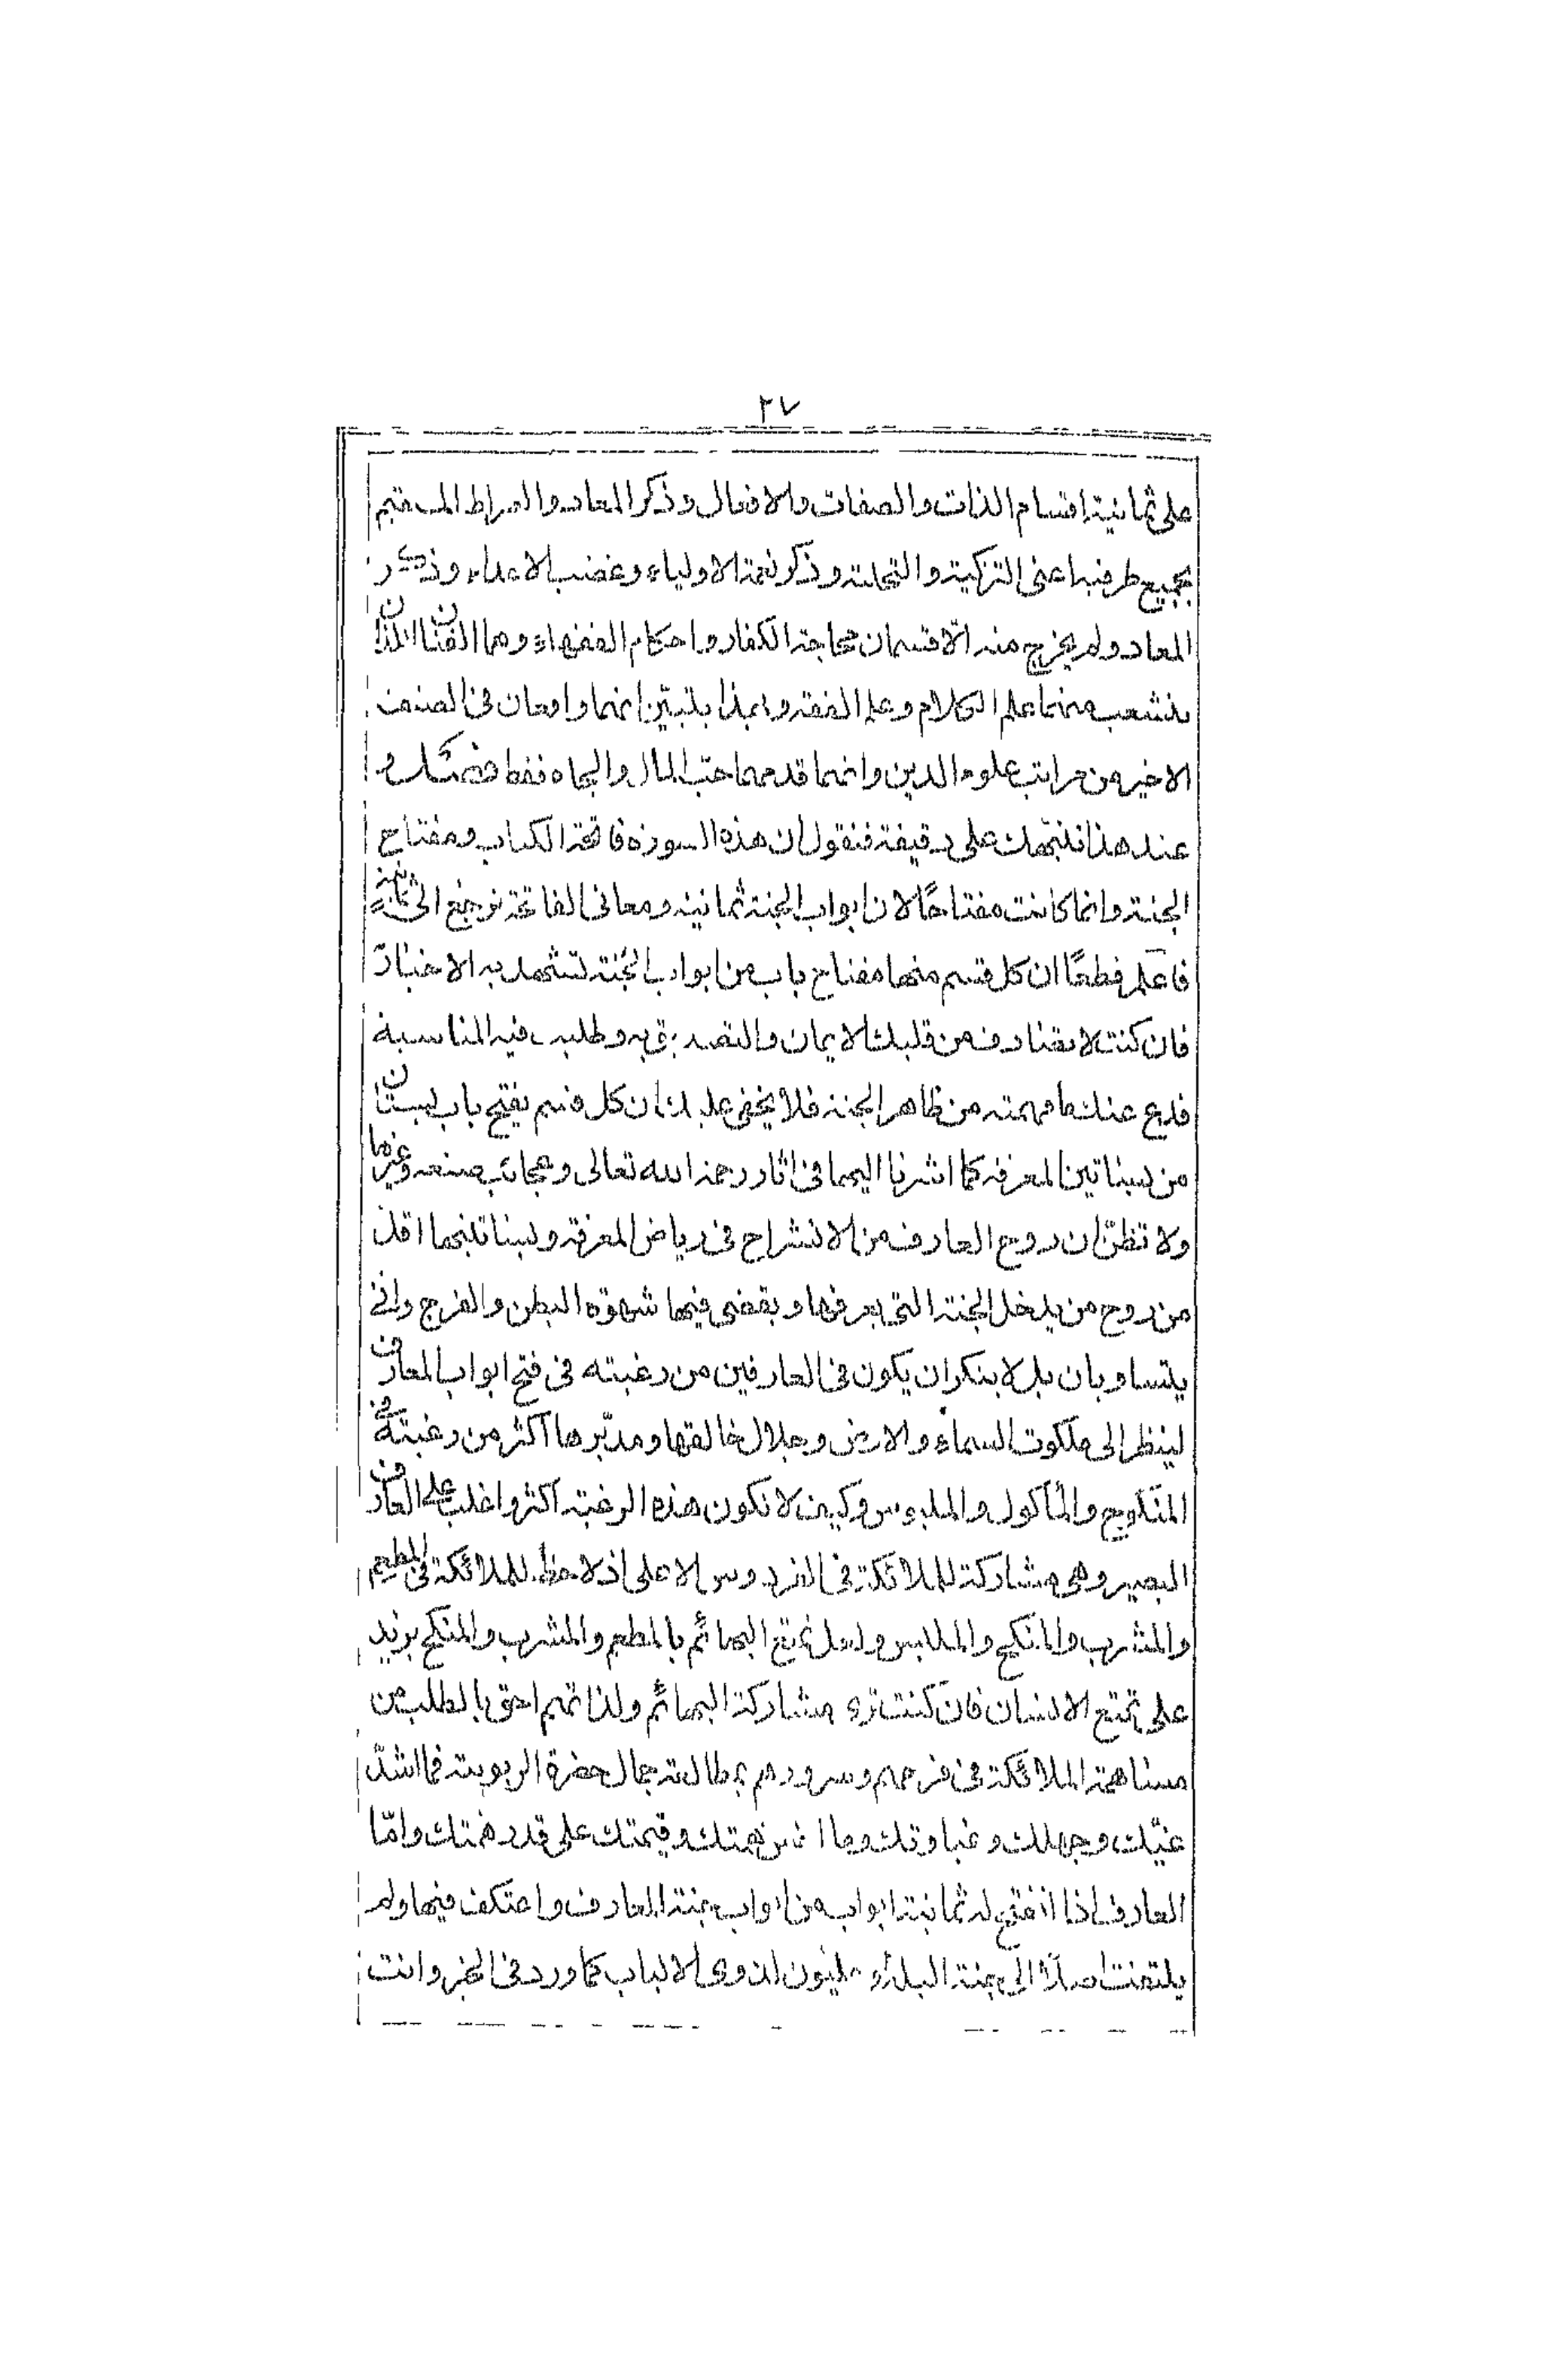 ٢٧
على ثمانية اقسام الذات والصفات والافعال وذكر المعاد والصراط المستقيم
بجميع طرفيها اعنى التزكية والتحلية وذكر نعمة الاولياء وغضب الاعداء وذكر
المعاد ولم يخرج منه الّا قسمان محاجة الكفار واحكام الفقهاء وهما الفنان اللذان
يتشعب منهما علم الكلام وعلم الفقه وبهذا يتبيّن انهما واقعان فى الصنف
الاخير من مراتب علوم الدين وانما قدمهما حبّ المال والجاه فقط
عند هذا ننبّهك على دقيقة فنقول ان هذه السورة فاتحة الكتاب ومفتاح
الجنة وانما كانت مفتاحًا لان ابواب الجنة ثمانية ومعانى الفاتحة ترجع الى ثمانية
فاعلم قطعًا ان كل قسم منها مفتاح باب من ابواب الجنة تشهد به الاخبار
فان كنت لا تصادف من قلبك الايمان والتصديق به وطلبت فيه المناسبة
فدع عنك ما فهمته من ظاهر الجنة فلا يخفى عليك ان كل قسم يفتح باب بستان
من بساتين المعرفة كما اشرنا اليها فى اثار رحمة الله تعالى وعجائب صنعه وغيرها
ولا تظنّ ان روح العارف من الانشراح فى رياض المعرفة وبساتينها اقل
من روح من يدخل الجنة التى يعرفها ويقضى فيها شهوة البطن والفرج وانى
يتساويان بل لا ينكر ان يكون فى العارفين من رغبته فى فتح ابواب المعارف
لينظر الى ملكوت السماء والارض وجلال خالقها ومدبّرها اكثر من رغبته فى
المنكوح والمأكول والملبوس وكيف لا تكون هذه الرغبة اكثر واغلب على العارف
البصير وهى مشاركة للملائكة فى الفردوس الاعلى اذ لا حظ للملائكة فى المطعم
والمشرب والمنكح والملابس ولعل تمتع البهائم بالمطعم والمشرب والمنكح يزيد
على تمتع الانسان فان كنت ترى مشاركة البهائم ولذاتهم احق بالطلب من
مساهمة الملائكة فى فرحهم وسرورهم بمطالعة جمال حضرة الربوبية فما اشدّ
غيّك وجهلك وغباوتك وما اخس همتك وقيمتك على قدر همتك وامّا
العارف اذا انفتح له ثمانية ابواب من ابواب جنة المعارف واعتكف فيها ولم
يلتفت اصلًا الى جنة البله عليون لذوى الالباب كما ورد فى الخبر وانت